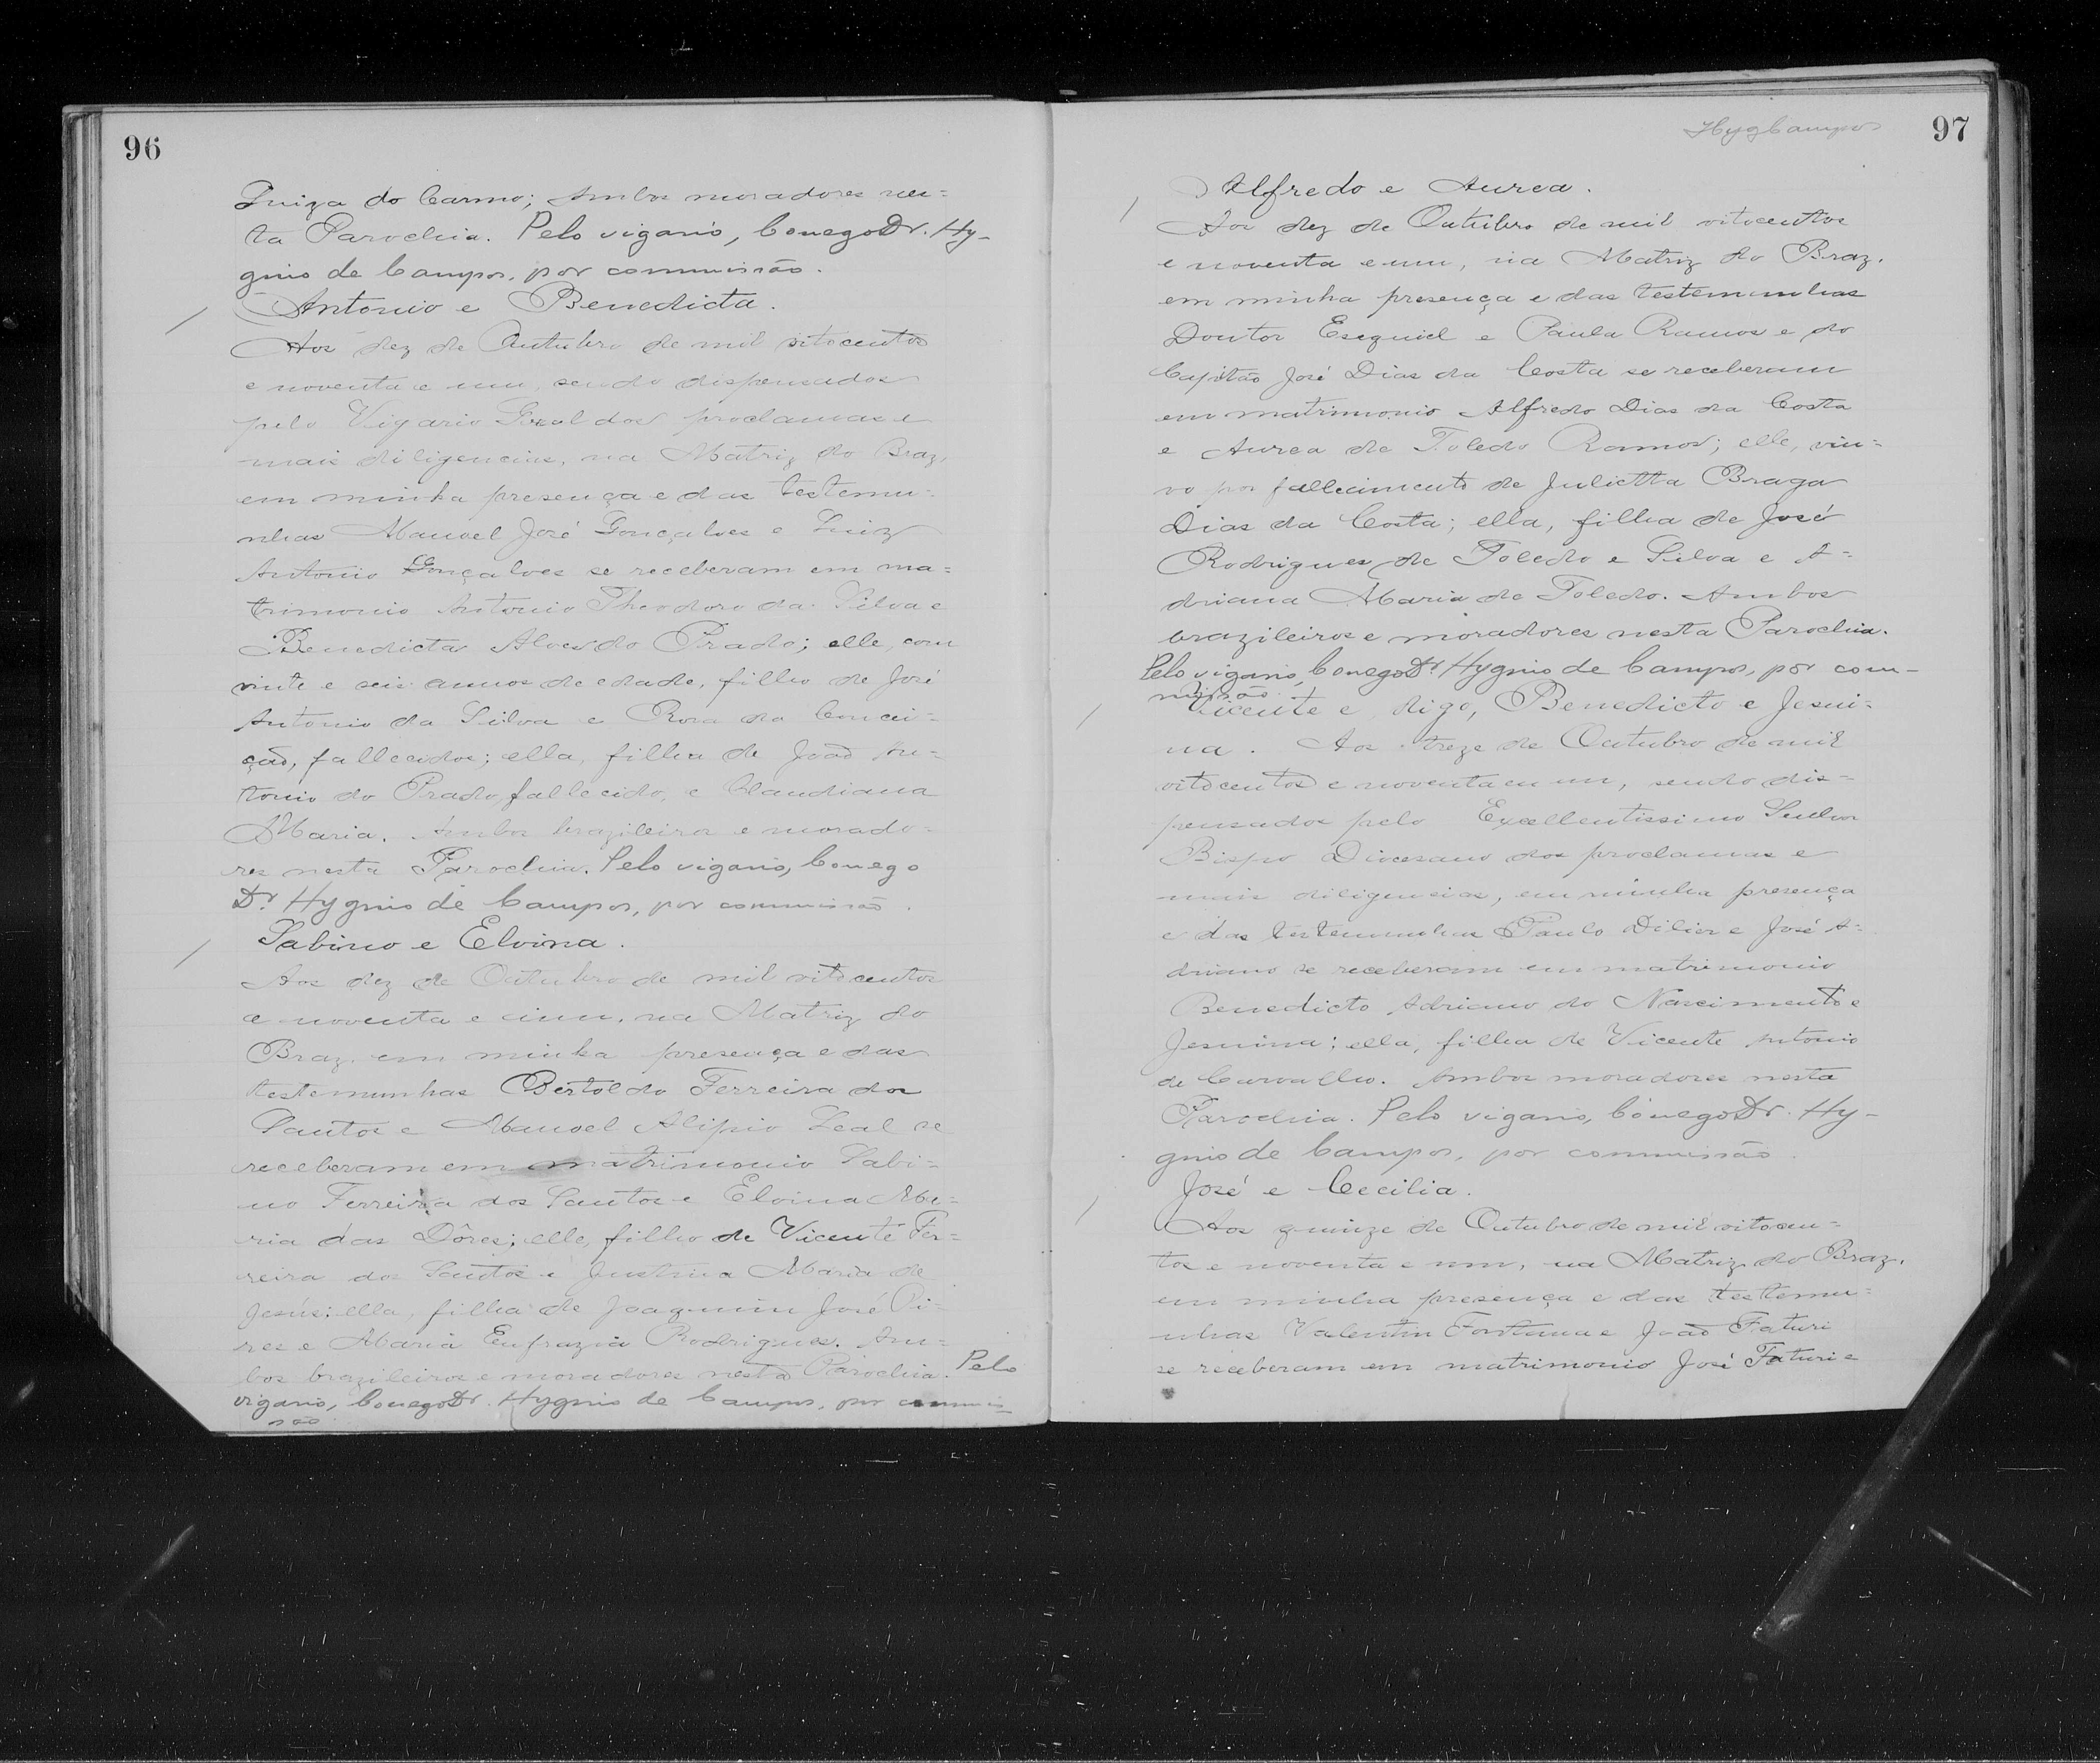 96
Luiza do Carmo; Ambos moradores nes=
ta Parochia. Pelo vigario, Conego Dr. Hy-
gino de Campos, por commissão.
Antonio e Benedicta.
Aos dez de Outubro de mil oitocentos
e noventa e um, sendo dispensados
pelo Vigario Geral dos proclamas e
mais diligencias, na Matriz do Braz,
em minha presença e das testemu-
nhas Manoel José Gonçalves e Luiz
Antonio Gonçalves se receberam em ma=
trimonio Antonio Theodoro da Silva e
Benedicta Alves do Prado; elle, com
vinte e seis annos de edade, filho de José
Antonio da Silva e Rosa da Concei=
ção, fallecidos; ella, filha de João An=
tonio do Prado, fallecido, e Claudiana
Maria. Ambos brazileiros e morado=
res nesta Parochia. Pelo vigario, Conego
Dr. Hygino de Campos, por commissão.
Sabino e Elvina.
Aos dez de Outubro de mil oitocentos
e noventa e um, na Matriz do
Braz, em minha presença e das
testemunhas Bertoldo Ferreira dos
Santos e Manoel Alipio Leal se
receberam em matrimonio Sabi=
no Ferreira dos Santos e Elvina Ma=
ria das Dôres; elle, filho de Vicente Fer=
reira dos Santos e Justina Maria de
Jesús; ella, filha de Joaquim José Pi=
res e Maria Eufrazia Rodrigues. Am=
bos brazileiros e moradores nesta Parochia. Pelo
vigario, Conego Dr. Hygino de Campos, por commis=
são
HygCampos
97
Alfredo e Aurea.
Aos dez de Outubro de mil oitocentos
e noventa e um, na Matriz do Braz.
em minha presença e das testemunhas
Doutor Esequiel e Paula Ramos e do
Capitão José Dias da Costa se receberam
em matrimonio Alfredo Dias da Costa
e Aurea de Toledo Ramos; elle, viu=
vo por fallecimento de Julietta Braga
Dias da Costa; ella, filha de José
Rodrigues de Toledo e Silva e A=
driana Maria de Toledo. Ambos
brazileiros e moradores nesta Parochia.
Pelo vigario, Conego Dr. Hygino de Campos, por com-
missão.
Vicente e digo, Benedicto e Jesui=
na. Aos treze de Outubro de mil
oitocentos e noventa e um, sendo dis=
pensados pelo Excellentissimo Senhor
Bispo Diocesano dos proclamas e
mais diligencias, em minha presença
e das testemunhas Paulo Dilier e José A=
driano se receberam em matrimonio
Benedicto Adriano do Nascimento e
Jesuina; ella, filha de Vicente Antonio
de Carvalho. Ambos moradores nesta
Parochia. Pelo vigario, Conego Dr. Hy-
gino de Campos, por commissão.
José e Cecilia.
Aos quinze de Outubro de mil oitocen=
tos e noventa e um, na Matriz do Braz,
em minha presença e das testemu=
nhas Valentin Fontana e João Faturi
se receberam em matrimonio José Faturi e